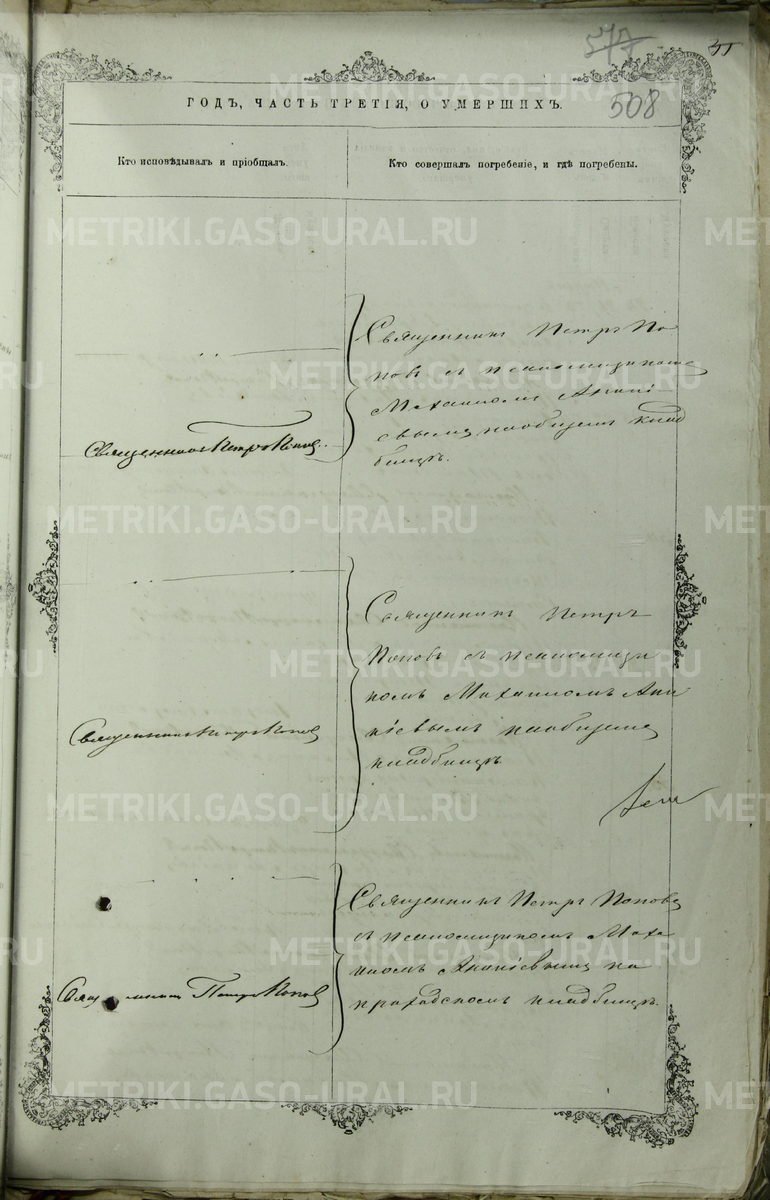 577
508
ГОДЪ, ЧАСТЬ ТРЕТІЯ, О УМЕРШИХЪ.
Кто исповѣдывалъ и пріобщалъ.
Кто совершалъ погребеніе, и гдѣ погребены.
METRIKI.GASO-URAL.RU
Священникъ Петръ По-
повъ съ псаломщикомъ
Михаиломъ Анані
евымъ на общемъ клад
бищѣ.
Священникъ Петръ Поповъ
Священникъ Петръ
Поповъ съ псаломщи
комъ Михаиломъ Ана
ніевымъ на общемъ
кладбищѣ
Священникъ Петръ Поповъ
Священникъ Петръ Поповъ
съ псаломщикомъ Миха
иломъ Ананіевымъ на
приходскомъ кладбищѣ.
Священникъ Петръ Поповъ